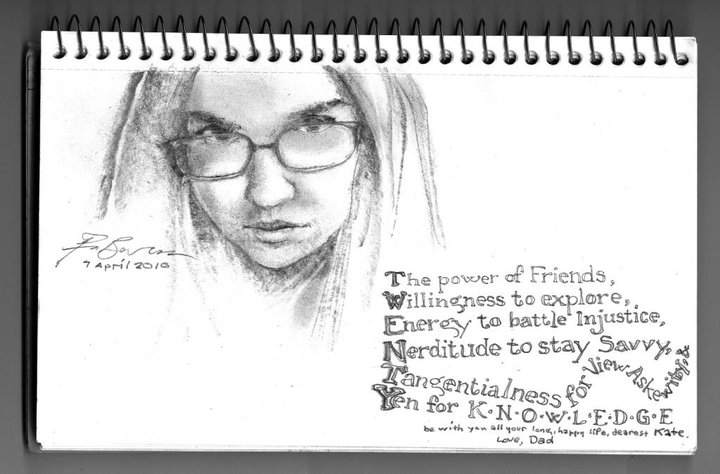 7 April 2010
The power of Friends,
Willingness to explore,
Energy to battle Injustice,
Nerditude to stay Savvy,
Tangentialness for View Askewity, &
Yen for K·N·O·W·L·E·D·G·E
be with you all your long, happy life, dearest Kate.
Love, Dad